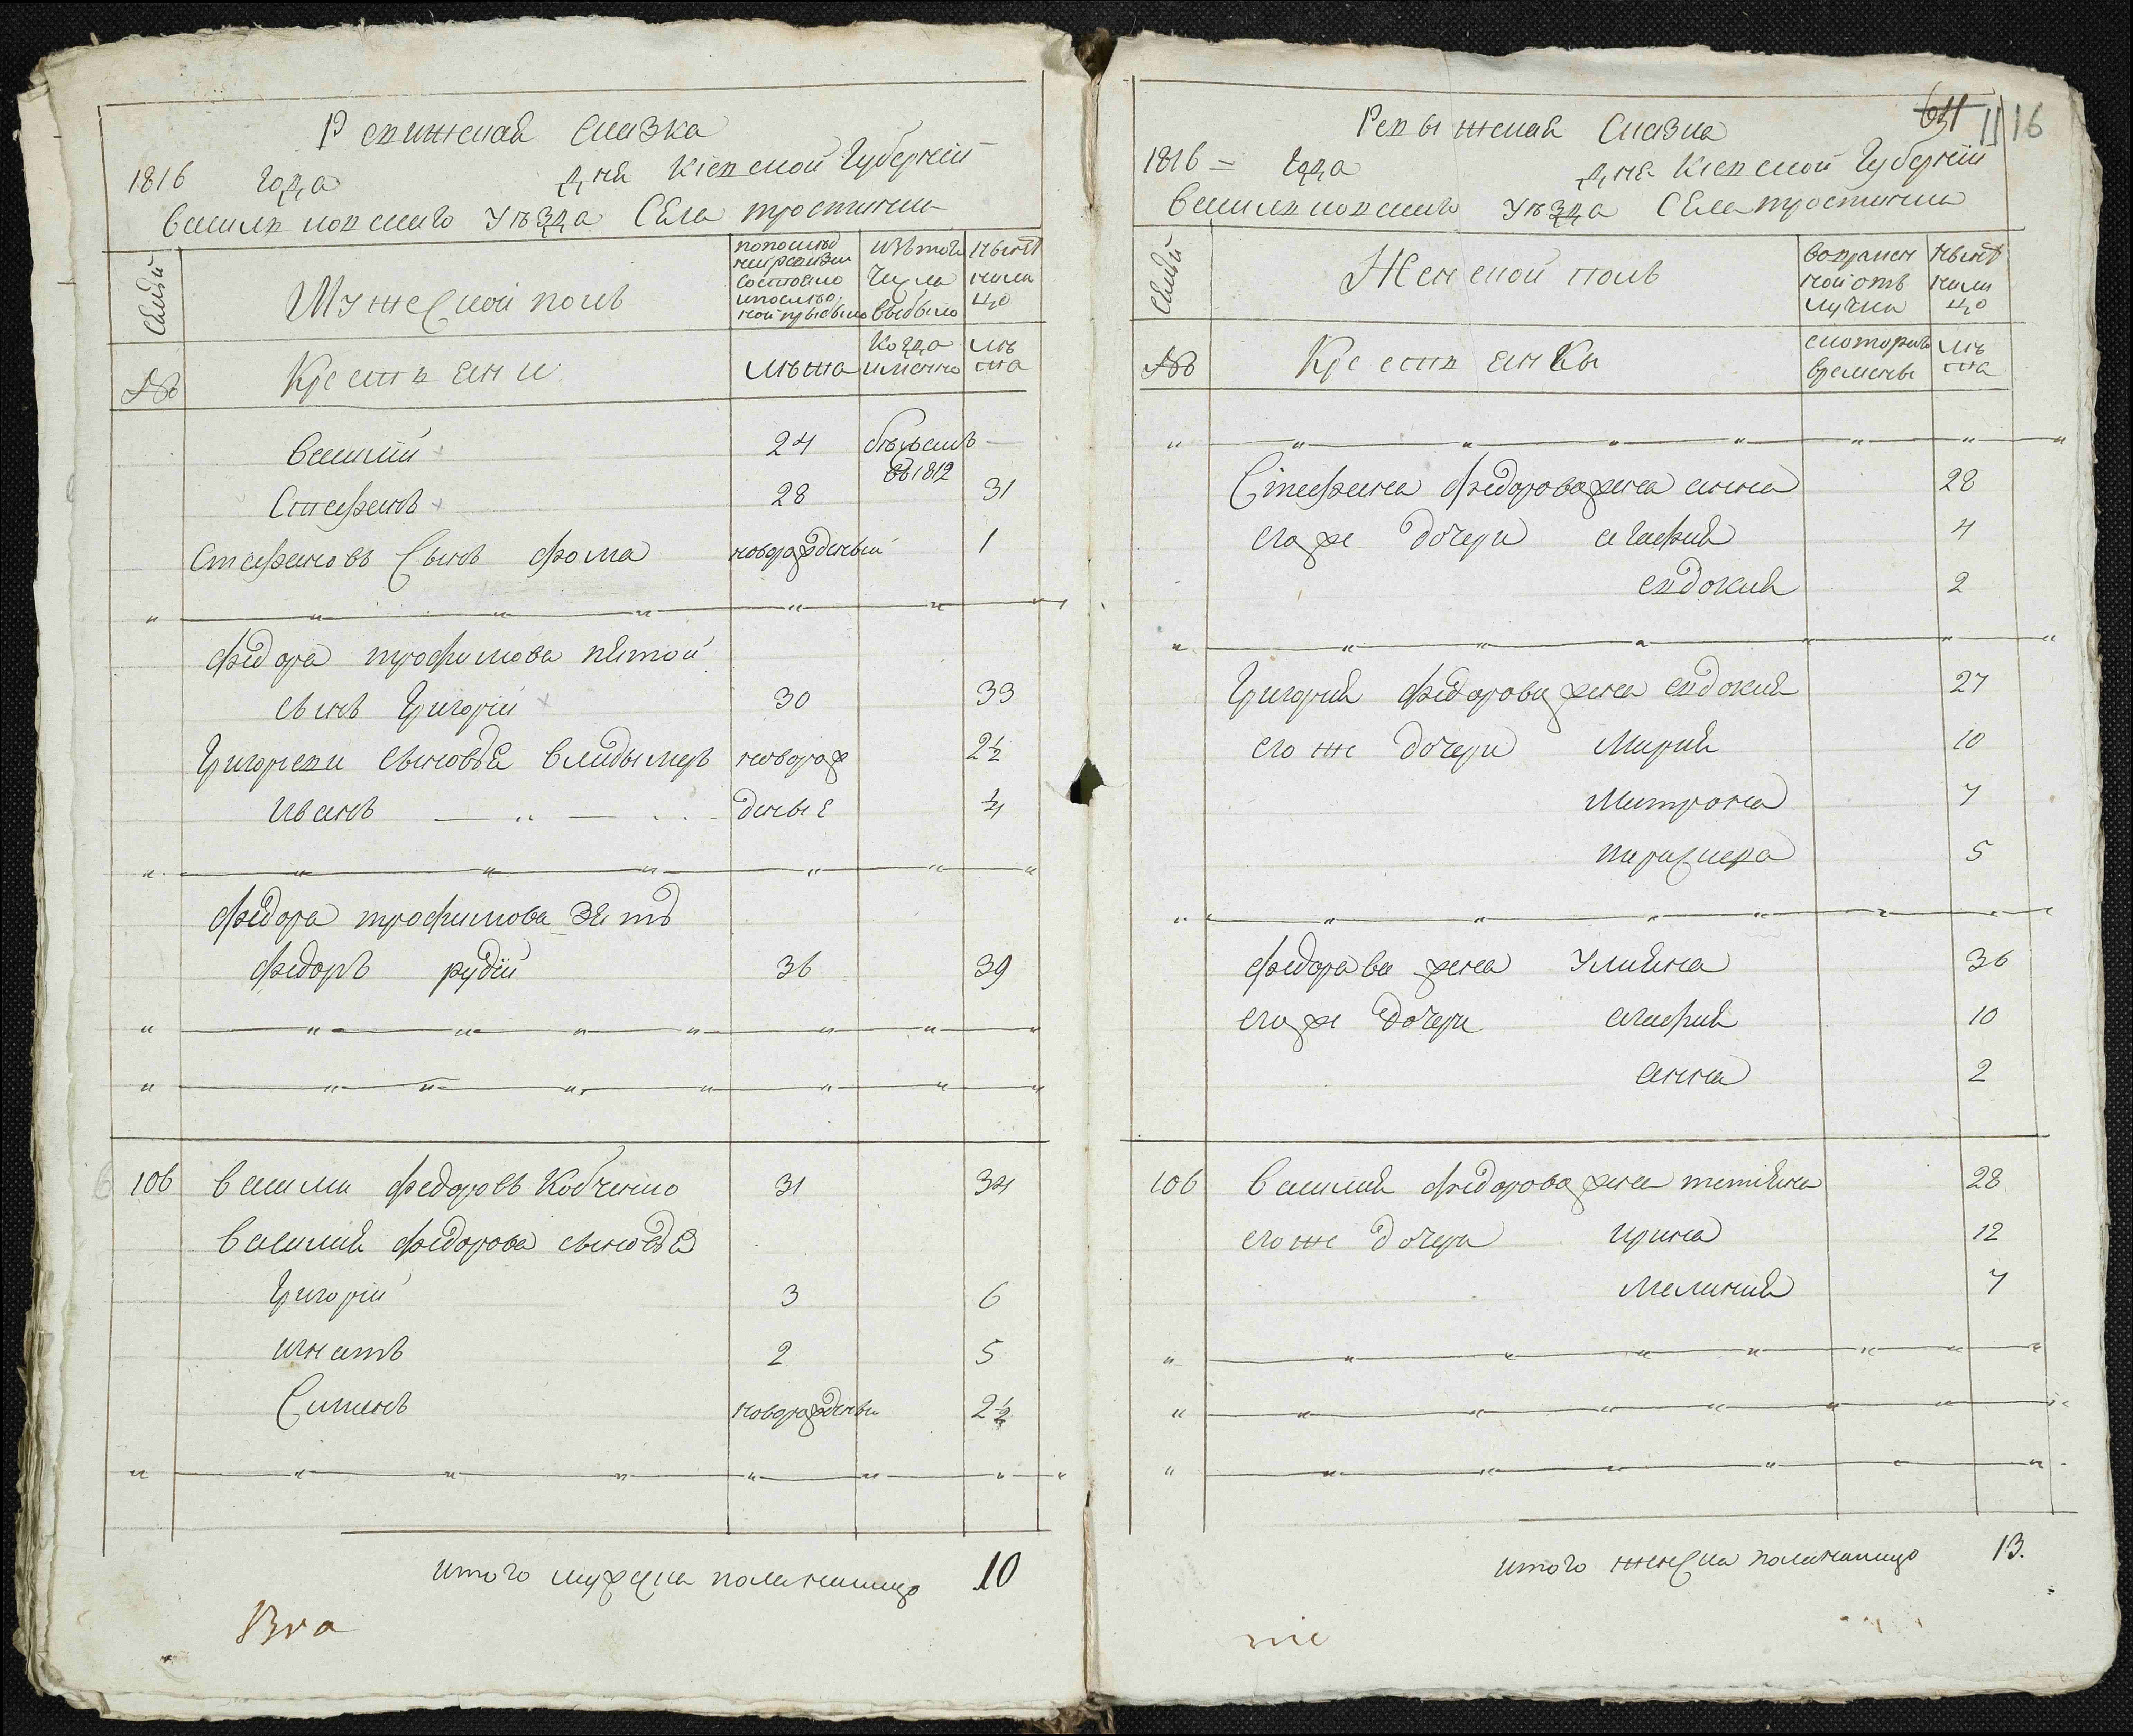 Ревижская Сказка
1816 года дня Кіевской Губерніи
василковского уѣзда Села тростинки
Семьи
Мужеской полъ
по последней ревизии состояло и после оной прибыло
изъ того числа выбыло
ныне на лицо
№
Крестьяни
лѣта
Когда именно
лѣта
василій 24 бежалъ въ 1812
Стефанъ 28 31
Стефановъ Сынъ фома новорожденый 1
федора трофимова пятой
сынъ Григорій 30 33
Григориеви сыновья владымеръ новорож 2½
иванъ деные ¼
федора трофимова зять
федоръ рудій 36 39
106 василии федоровъ Кобченко 31 34
василия федорова сыновья
Григорій 3 6
игнатъ 2 5
Симионъ новорожденый 2½
итого мужеска пола налицо 10
Ревыжская Сказка
641 11 16
1816 года дня Кіевской Губерніи
василковского уѣзда Села тростинки
Семьи
Женской полъ
во времянной отлучки
ныне на лицо
№
Крестьянки
с которого времени
лѣта
Стефана федорова жена анна 28
его же дочери агафия 4
евдокия 2
Григория федорова жена евдокия 27
его же дочери Мария 10
Матрона 7
параскева 5
федорова жена Улияна 36
его же дочери агафия 10
анна 2
106 василия федорова жена татияна 28
его же дочери ирина 12
Мелания 7
итого женска пола налицо 13.